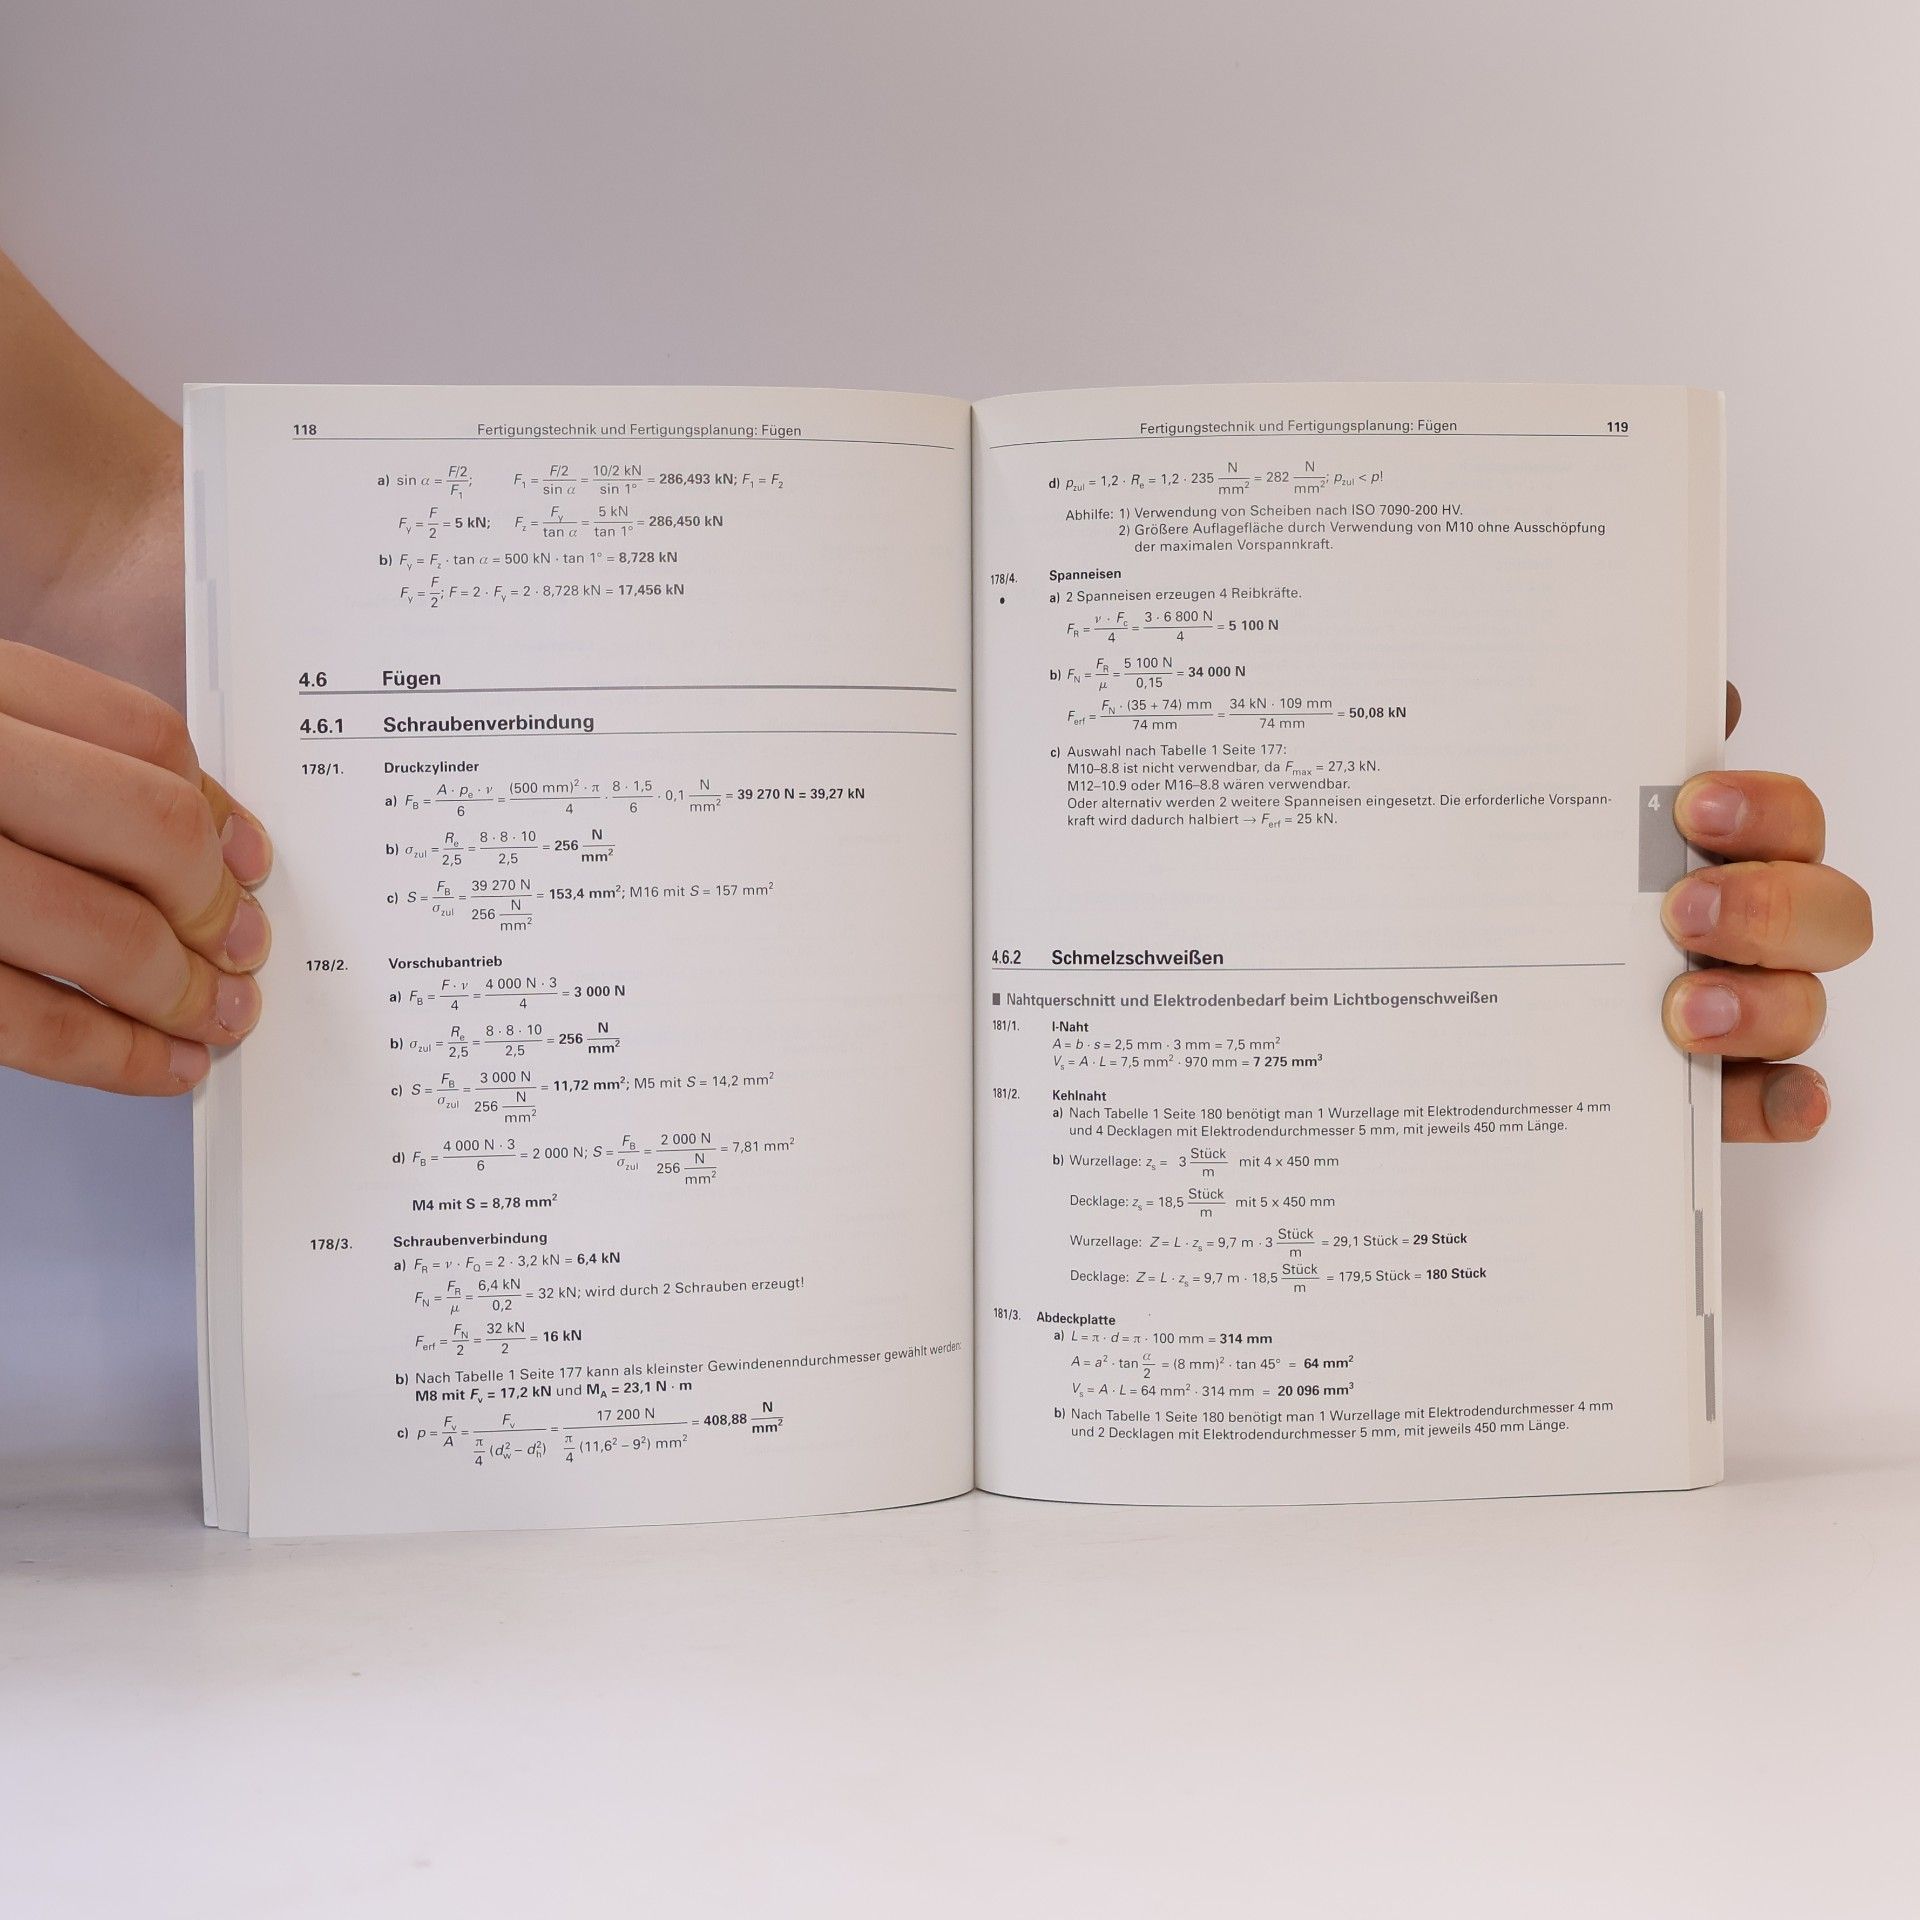 118 Fertigungstechnik und Fertigungsplanung: Fügen
a) sin α = (F/2)/F₁; F₁ = (F/2)/(sin α) = (10/2 kN)/(sin 1°) = 286,493 kN; F₁ = F₂
F_y = F/2 = 5 kN; F_z = F_y/(tan α) = (5 kN)/(tan 1°) = 286,450 kN
b) F_y = F_z · tan α = 500 kN · tan 1° = 8,728 kN
F_y = F/2; F = 2 · F_y = 2 · 8,728 kN = 17,456 kN
4.6 Fügen
4.6.1 Schraubenverbindung
178/1. Druckzylinder
a) F_B = (A · p_e · ν)/6 = ((500 mm)² · π)/4 · (8 · 1,5)/6 · 0,1 N/mm² = 39 270 N = 39,27 kN
b) σ_zul = R_e/2,5 = (8 · 8 · 10)/2,5 = 256 N/mm²
c) S = F_B/σ_zul = (39 270 N)/(256 N/mm²) = 153,4 mm²; M16 mit S = 157 mm²
178/2. Vorschubantrieb
a) F_B = (F · ν)/4 = (4 000 N · 3)/4 = 3 000 N
b) σ_zul = R_e/2,5 = (8 · 8 · 10)/2,5 = 256 N/mm²
c) S = F_B/σ_zul = (3 000 N)/(256 N/mm²) = 11,72 mm²; M5 mit S = 14,2 mm²
d) F_B = (4 000 N · 3)/6 = 2 000 N; S = F_B/σ_zul = (2 000 N)/(256 N/mm²) = 7,81 mm²
M4 mit S = 8,78 mm²
178/3. Schraubenverbindung
a) F_R = ν · F_Q = 2 · 3,2 kN = 6,4 kN
F_N = F_R/μ = (6,4 kN)/0,2 = 32 kN; wird durch 2 Schrauben erzeugt!
F_erf = F_N/2 = (32 kN)/2 = 16 kN
b) Nach Tabelle 1 Seite 177 kann als kleinster Gewindenenndurchmesser gewählt werden:
M8 mit F_v = 17,2 kN und M_A = 23,1 N · m
c) p = F_v/A = F_v/(π/4 (d_w² – d_h²)) = (17 200 N)/(π/4 (11,6² – 9²) mm²) = 408,88 N/mm²
Fertigungstechnik und Fertigungsplanung: Fügen 119
d) p_zul = 1,2 · R_e = 1,2 · 235 N/mm² = 282 N/mm²; p_zul < p!
Abhilfe: 1) Verwendung von Scheiben nach ISO 7090-200 HV.
2) Größere Auflagefläche durch Verwendung von M10 ohne Ausschöpfung
der maximalen Vorspannkraft.
178/4. Spanneisen
• a) 2 Spanneisen erzeugen 4 Reibkräfte.
F_R = (ν · F_c)/4 = (3 · 6 800 N)/4 = 5 100 N
b) F_N = F_R/μ = (5 100 N)/0,15 = 34 000 N
F_erf = (F_N · (35 + 74) mm)/(74 mm) = (34 kN · 109 mm)/(74 mm) = 50,08 kN
c) Auswahl nach Tabelle 1 Seite 177:
M10–8.8 ist nicht verwendbar, da F_max = 27,3 kN.
M12–10.9 oder M16–8.8 wären verwendbar.
Oder alternativ werden 2 weitere Spanneisen eingesetzt. Die erforderliche Vorspann-
kraft wird dadurch halbiert → F_erf = 25 kN.
4
4.6.2 Schmelzschweißen
■ Nahtquerschnitt und Elektrodenbedarf beim Lichtbogenschweißen
181/1. I-Naht
A = b · s = 2,5 mm · 3 mm = 7,5 mm²
V_s = A · L = 7,5 mm² · 970 mm = 7 275 mm³
181/2. Kehlnaht
a) Nach Tabelle 1 Seite 180 benötigt man 1 Wurzellage mit Elektrodendurchmesser 4 mm
und 4 Decklagen mit Elektrodendurchmesser 5 mm, mit jeweils 450 mm Länge.
b) Wurzellage: z_s = 3 Stück/m mit 4 x 450 mm
Decklage: z_s = 18,5 Stück/m mit 5 x 450 mm
Wurzellage: Z = L · z_s = 9,7 m · 3 Stück/m = 29,1 Stück = 29 Stück
Decklage: Z = L · z_s = 9,7 m · 18,5 Stück/m = 179,5 Stück = 180 Stück
181/3. Abdeckplatte
a) L = π · d = π · 100 mm = 314 mm
A = a² · tan α/2 = (8 mm)² · tan 45° = 64 mm²
V_s = A · L = 64 mm² · 314 mm = 20 096 mm³
b) Nach Tabelle 1 Seite 180 benötigt man 1 Wurzellage mit Elektrodendurchmesser 4 mm
und 2 Decklagen mit Elektrodendurchmesser 5 mm, mit jeweils 450 mm Länge.